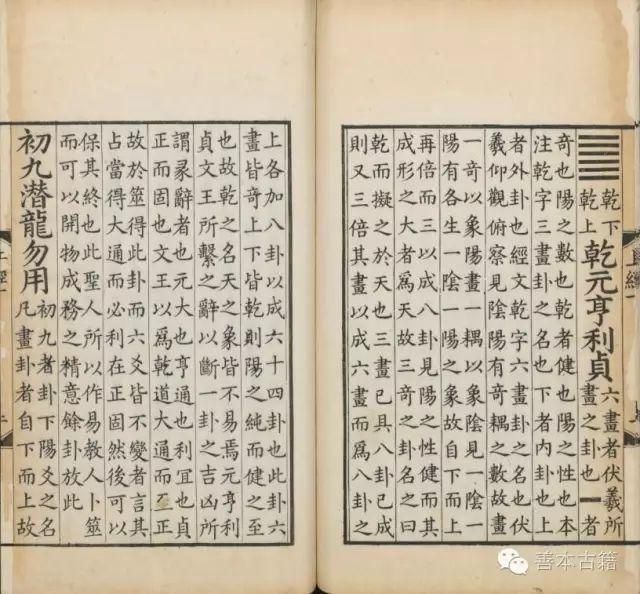 ䷀
乾下
乾上
乾元亨利貞
六畫者伏羲所
畫之卦也一者
奇也陽之數也乾者健也陽之性也本
注乾字三畫卦之名也下者内卦也上
者外卦也經文乾字六畫卦之名也伏
羲仰觀俯察見陰陽有奇耦之數故畫
一奇以象陽畫一耦以象陰見一陰一
陽有各生一陰一陽之象故自下而上
再倍而三以成八卦見陽之性健而其
成形之大者爲天故三奇之卦名之曰
乾而擬之於天也三畫已具八卦已成
則又三倍其畫以成六畫而爲八卦之
上各加八卦以成六十四卦也此卦六
畫皆奇上下皆乾則陽之純而健之至
也故乾之名天之象皆不易焉元亨利
貞文王所繫之辭以斷一卦之吉凶所
謂彖辭者也元大也亨通也利宜也貞
正而固也文王以爲乾道大通而至正
故於筮得此卦而六爻皆不變者言其
占當得大通而必利在正固然後可以
保其終也此聖人所以作易教人卜筮
而可以開物成務之精意餘卦放此
初九潛龍勿用
初九者卦下陽爻之名
凡畫卦者自下而上故
善本古籍